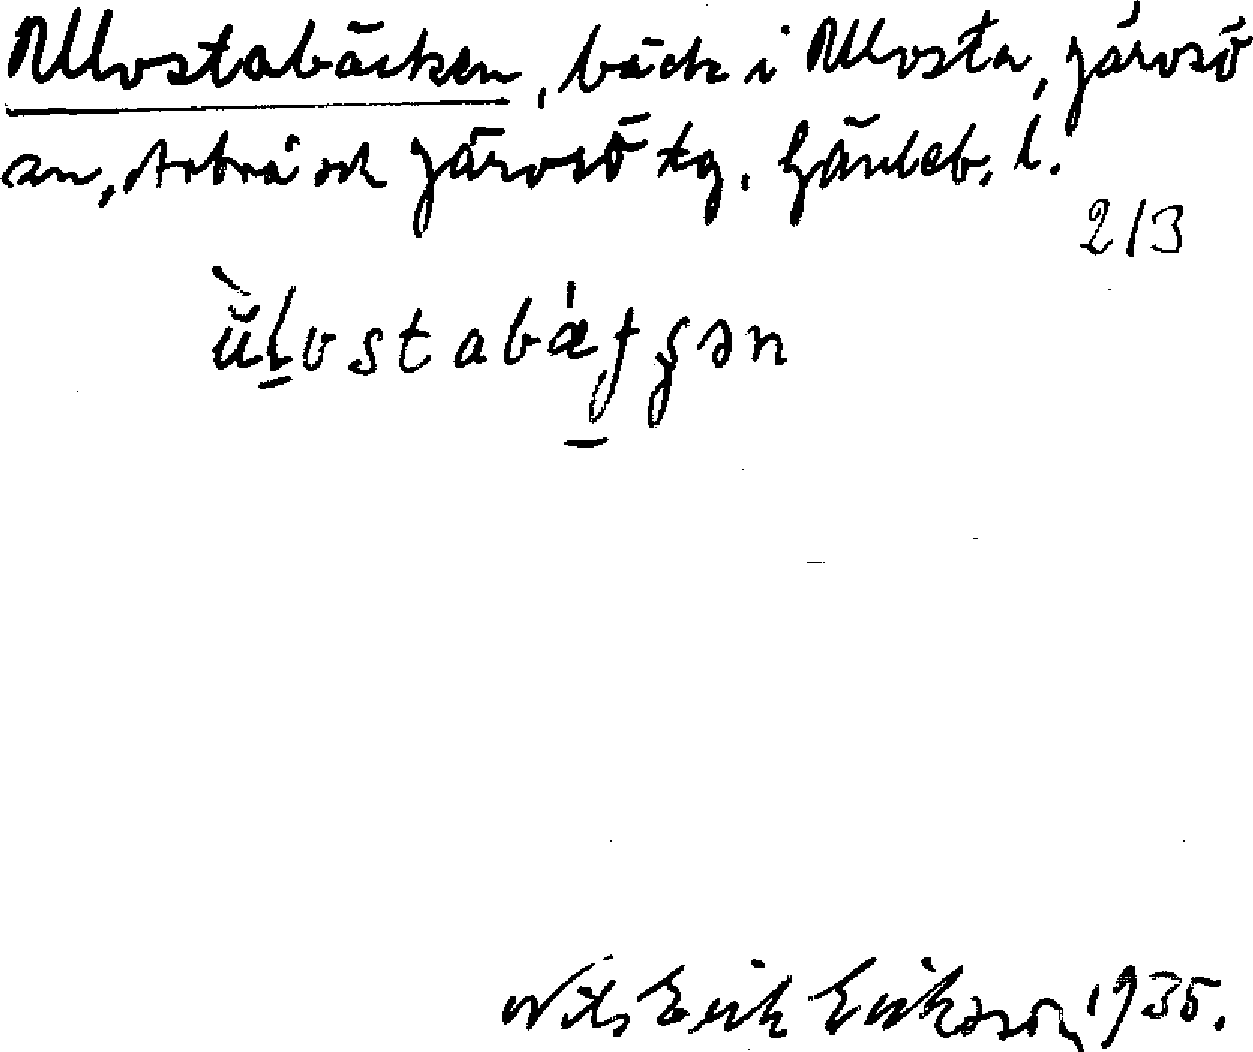 Ullvostabäcken, bäck i Ullvosta, Järvsö
sn, Arbrå och Järvsö tg. Gävleb. l.
2/3
Nils Erik Eriksson, 1935.